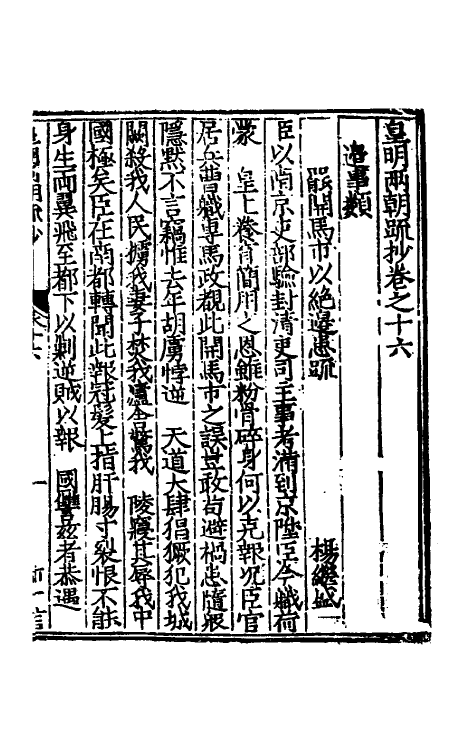 皇明兩朝疏抄卷之十六
邉事類
罷開馬市以絶邊患疏 楊繼盛
臣以南京吏部驗封清吏司主事考滿到京陞臣今職荷
蒙 皇上養育簡用之恩雖粉骨碎身何以克報况臣官
居兵曹職專馬政覩此開馬市之誤豈敢苟避禍患隨衆
隱默不言竊惟去年胡虜悖逆 天道大肆猖獗犯我城
闕殺我人民擄我妻子焚我廬舍驚我 陵寢其辱我中
國極矣臣在南都轉聞此報冠髮上指肝腸寸裂恨不能
身生兩翼飛至都下以剿逆賊以報 國讐兹者恭遇
皇明兩朝疏抄 卷十六 一